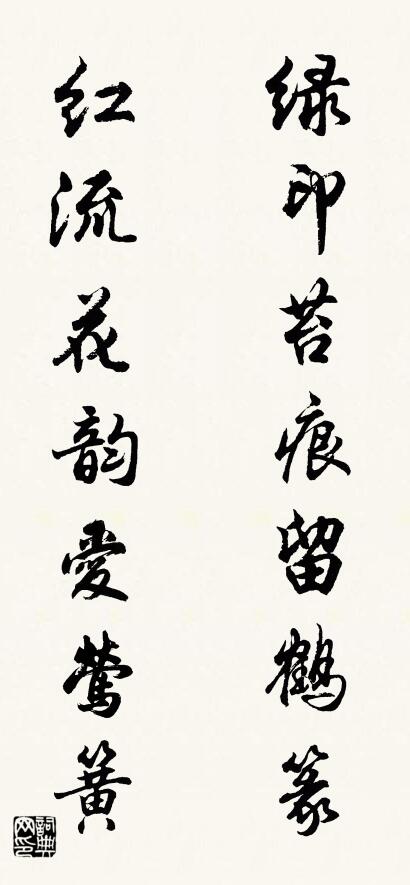 绿印苔痕留鹤篆
红流花韵愛莺簧
詞典
网印